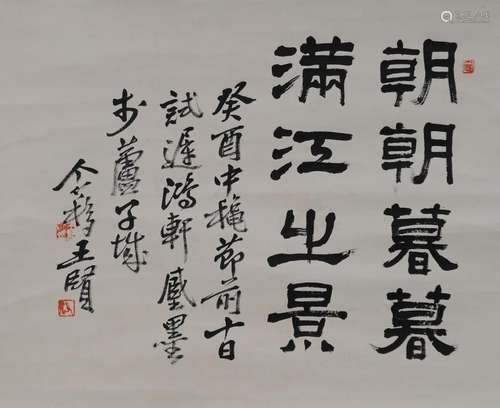 朝朝暮暮
满江之景
癸酉中秌節前十日
試遲鴻軒藏墨
於蘆子城
个簃王賢